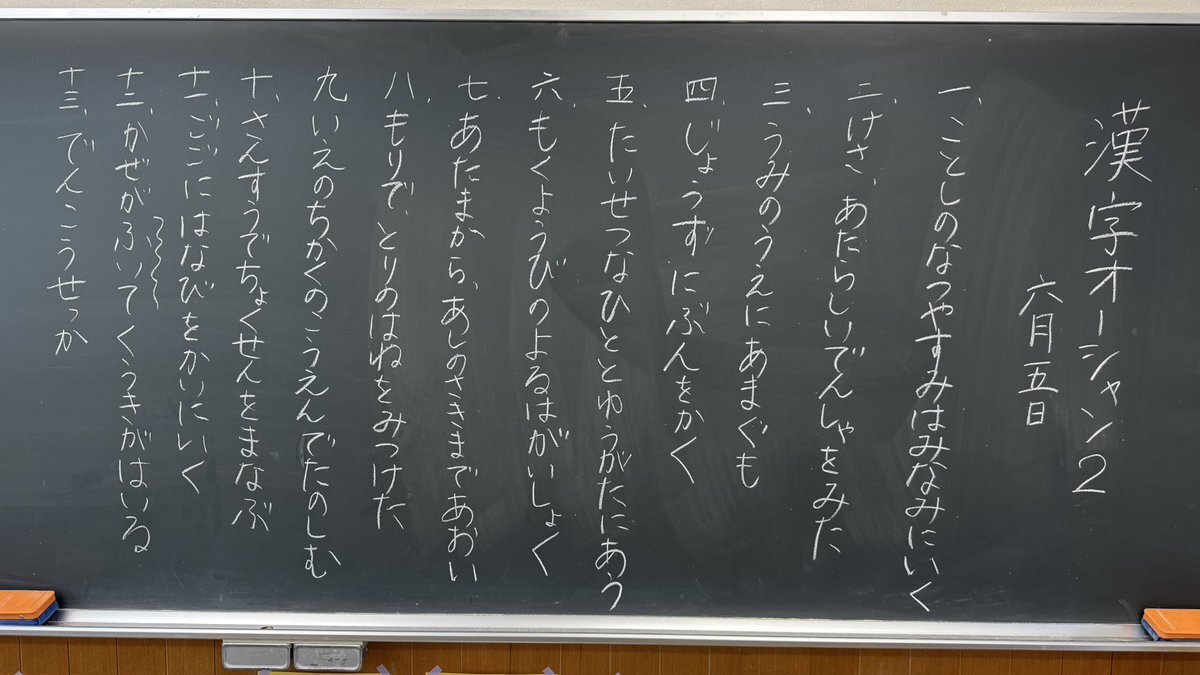 漢字オーシャン2
六月五日
一、ことしのなつやすみはみなみにいく
二、けさ、あたらしいでんしゃをみた
三、うみのうえにあまぐも
四、じょうずにぶんをかく
五、たいせつなひととゆうがたにあう
六、もくようびのよるはがいしょく
七、あたまから、あしのさきまであおい
八、もりで、とりのはねをみつけた
九、いえのちかくのこうえんでたのしむ
十、さんすうでちょくせんをまなぶ
十一、ごごにはなびをかいにいく
十二、かぜがふいてくうきがはいる
十三、でんこうせっか